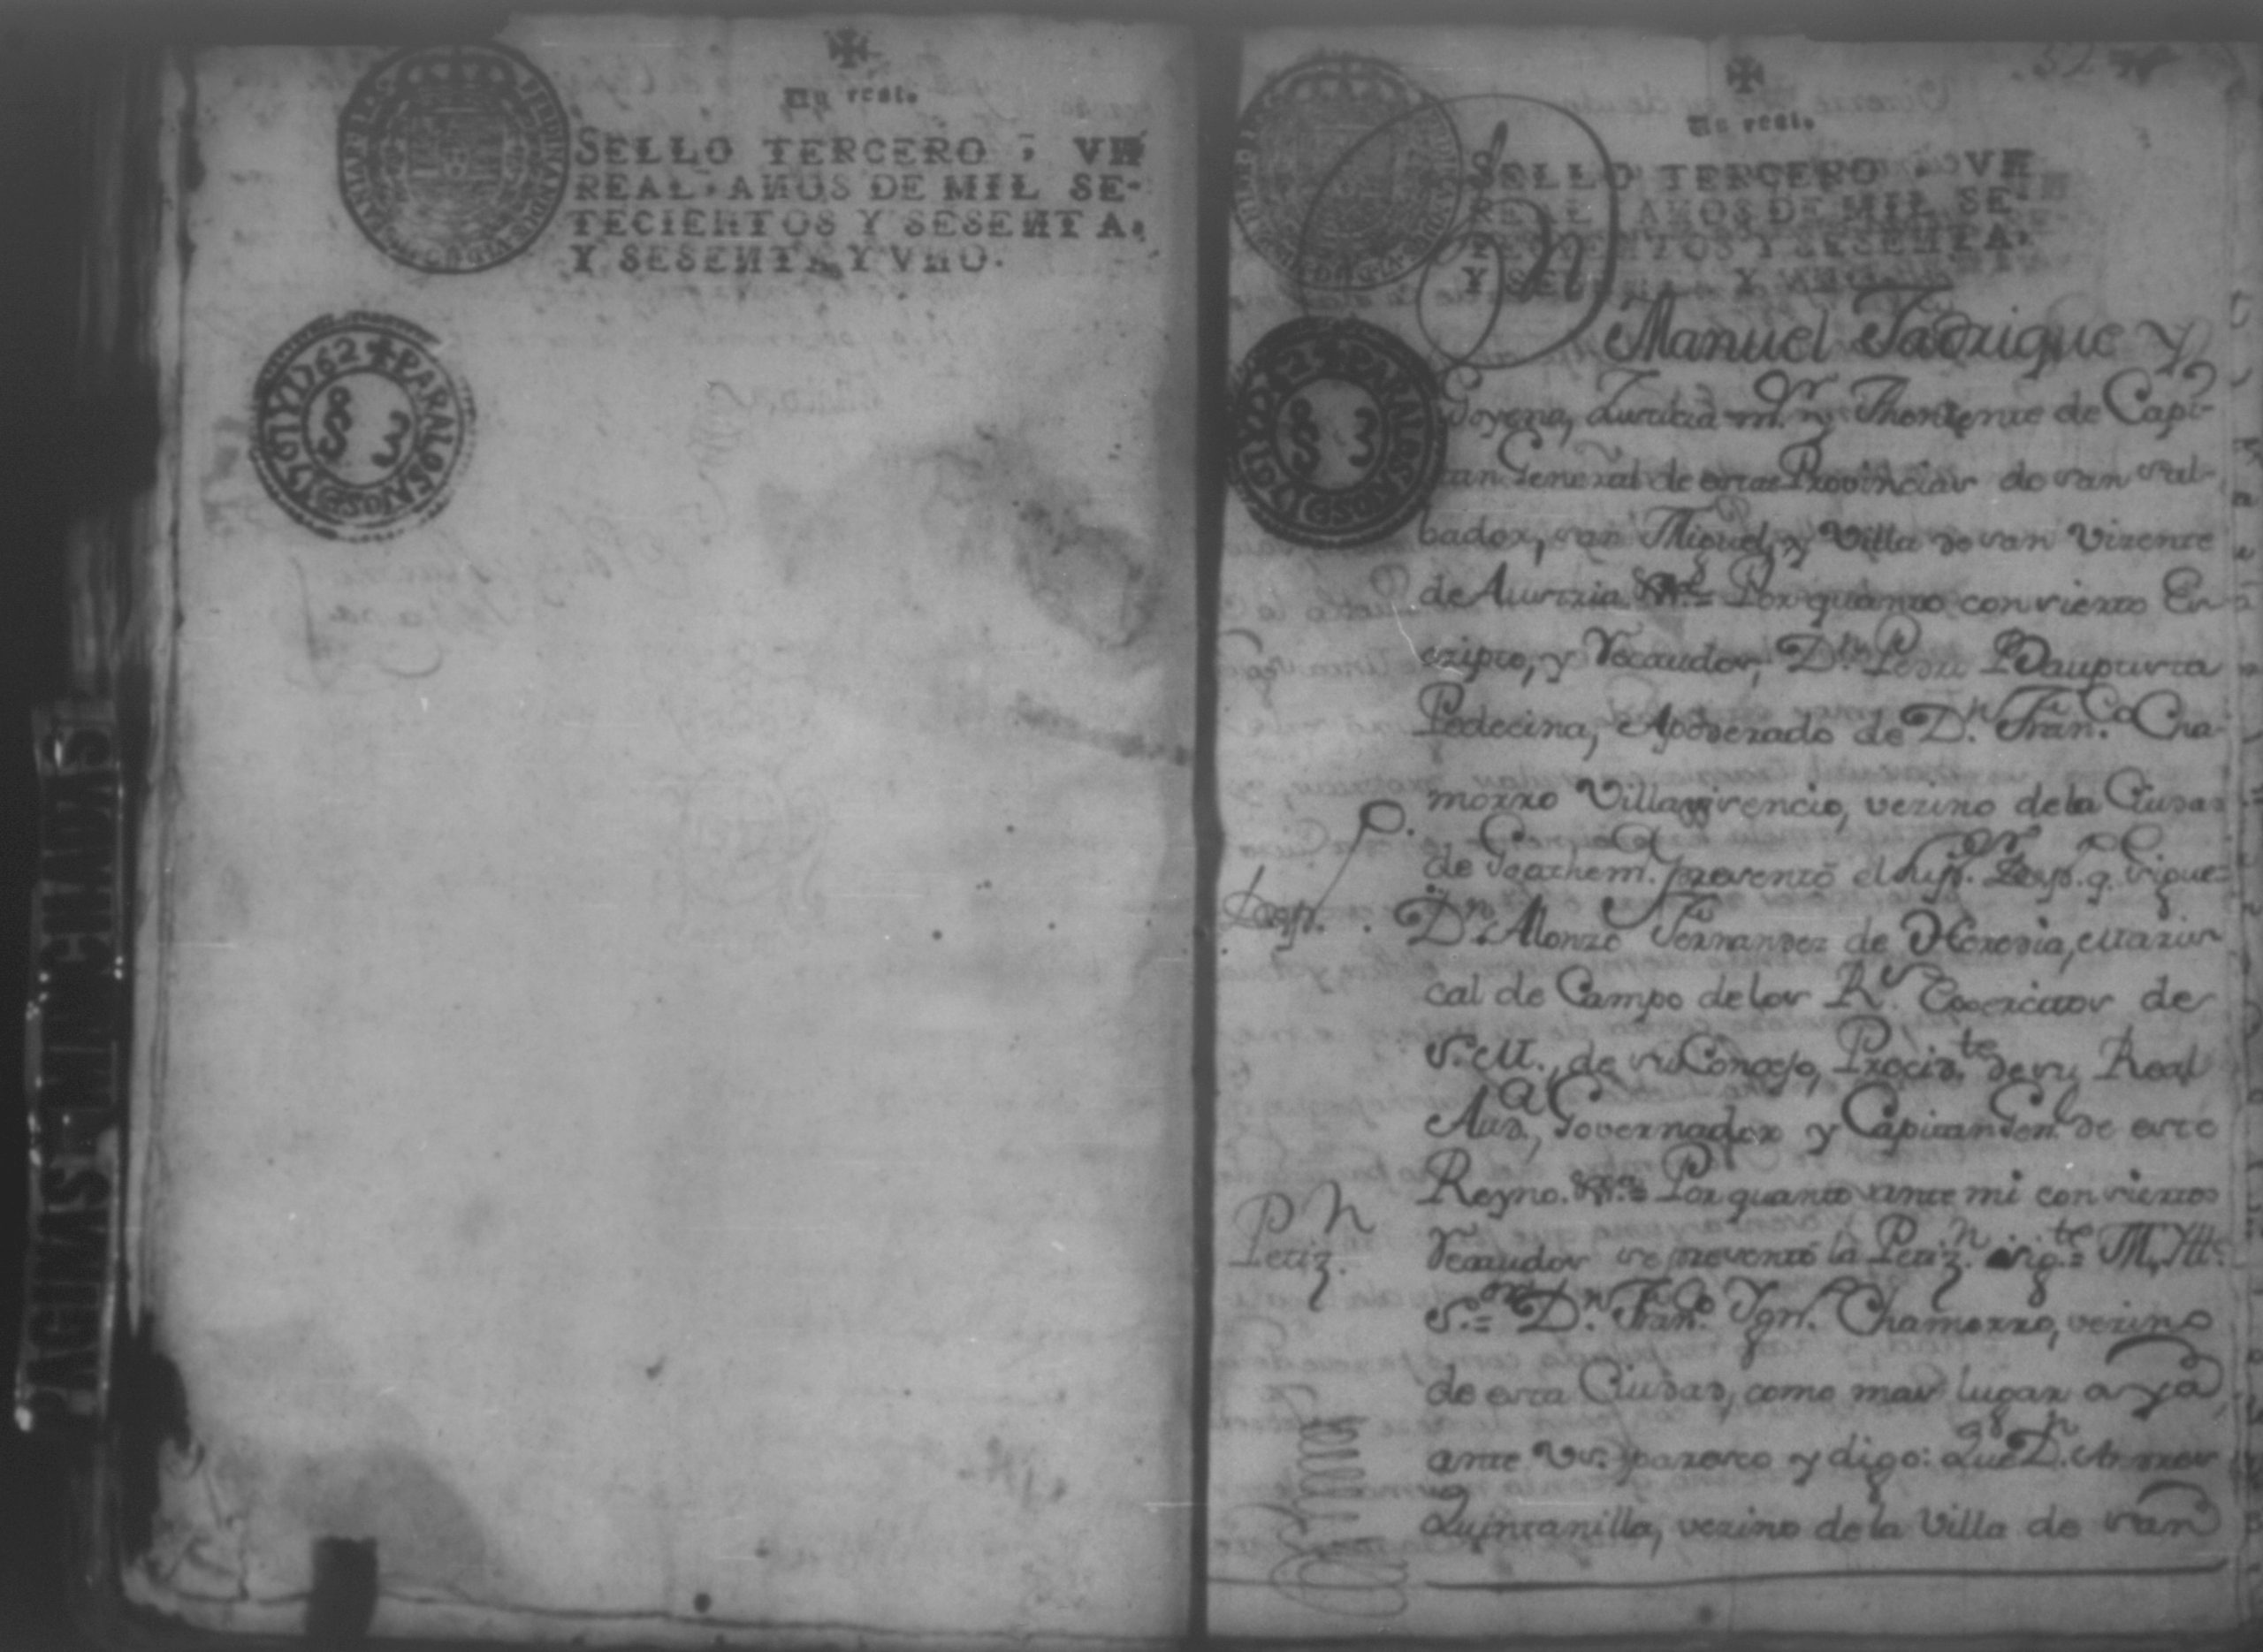 Un real.
SELLO TERCERO, VN
REAL, AÑOS DE MIL SE-
TECIENTOS Y SESENTA,
Y SESENTA Y VNO.
PARA LOS AÑOS DE 1761 Y 1762
3
32
Un real.
SELLO TERCERO, VN
REAL, AÑOS DE MIL SE-
TECIENTOS Y SESENTA,
Y SESENTA Y VNO.
PARA LOS AÑOS DE 1761 Y 1762
3
Dn Manuel Fadrique y
Goyena, Justicia mr. y Theniente de Capi-
tan General de estas Provincias de san sal-
bador, san Miguel, y Villa de san Vizente
de Austria &a. = Por quanto con cierto Es-
cripto, y Recaudos, Dn. Pedro Bauptista
Pedecina, Apoderado de Dn. Franco. Cha-
morro Villavicencio, vezino de la Ciudad
de Goathema. presentó el supor. Desp. q. sigue=
Desp.
Dn. Alonzo Fernandez de Heredia, Maris-
cal de Campo de los Rs. Exercitos de
S. M., de su Consejo, Presidte. de su Real
Auda., Governador y Capitan Genl. de este
Reyno. &a. = Por quanto ante mi con ciertos
Petizn.
Recaudos se presentó la Petizn. sigte. = M. Ytte.
Sor. = Dn. Franco. Ygn. Chamorro, vezino
de esta Ciudad, como mas lugar aya
ante Vs. paresco y digo: Que Dn.
Quintanilla, vezino de la Villa de san